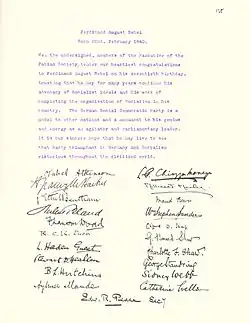 Ferdinand August Bebel
Born 22nd. February 1840.
We, the undersigned, members of the Executive of the
Fabian Society, tender our heartiest congratulations
to Ferdinand August Bebel on his seventieth birthday,
trusting that he may for many years continue his
advocacy of Socialist ideals and his work of
completing the organisation of Socialism in his
country. The German Social Democratic Party is a
model to other nations and a monument to his genius
and energy as an agitator and parliamentary leader.
it is our sincere hope that he may live to see
that Party triumphant in Germany and Socialism
victorious throughout the civilized world.
Mabel Atkinson
Granville Barker
Ethel Bentham
Hubert Bland
R. C. K. Ensor
L. Haden Guest
B L Hutchins
Aylmer Maude
W Stephen Sanders
G. Bernard Shaw
Charlotte F. Shaw
George Standring
Sidney Webb
Catherine Wells
Edw. R. Pease Secy